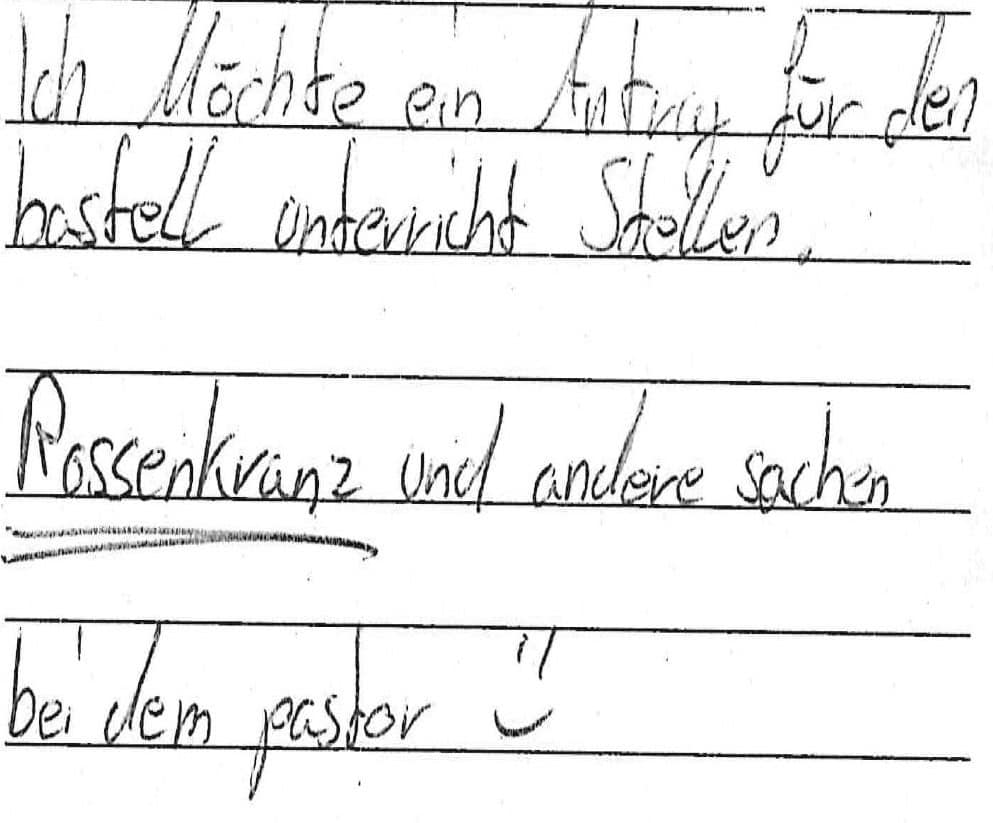 Ich Möchte ein Antrag für den
bastell unterricht Stellen.
Rossenkranz und andere sachen
bei dem pastor